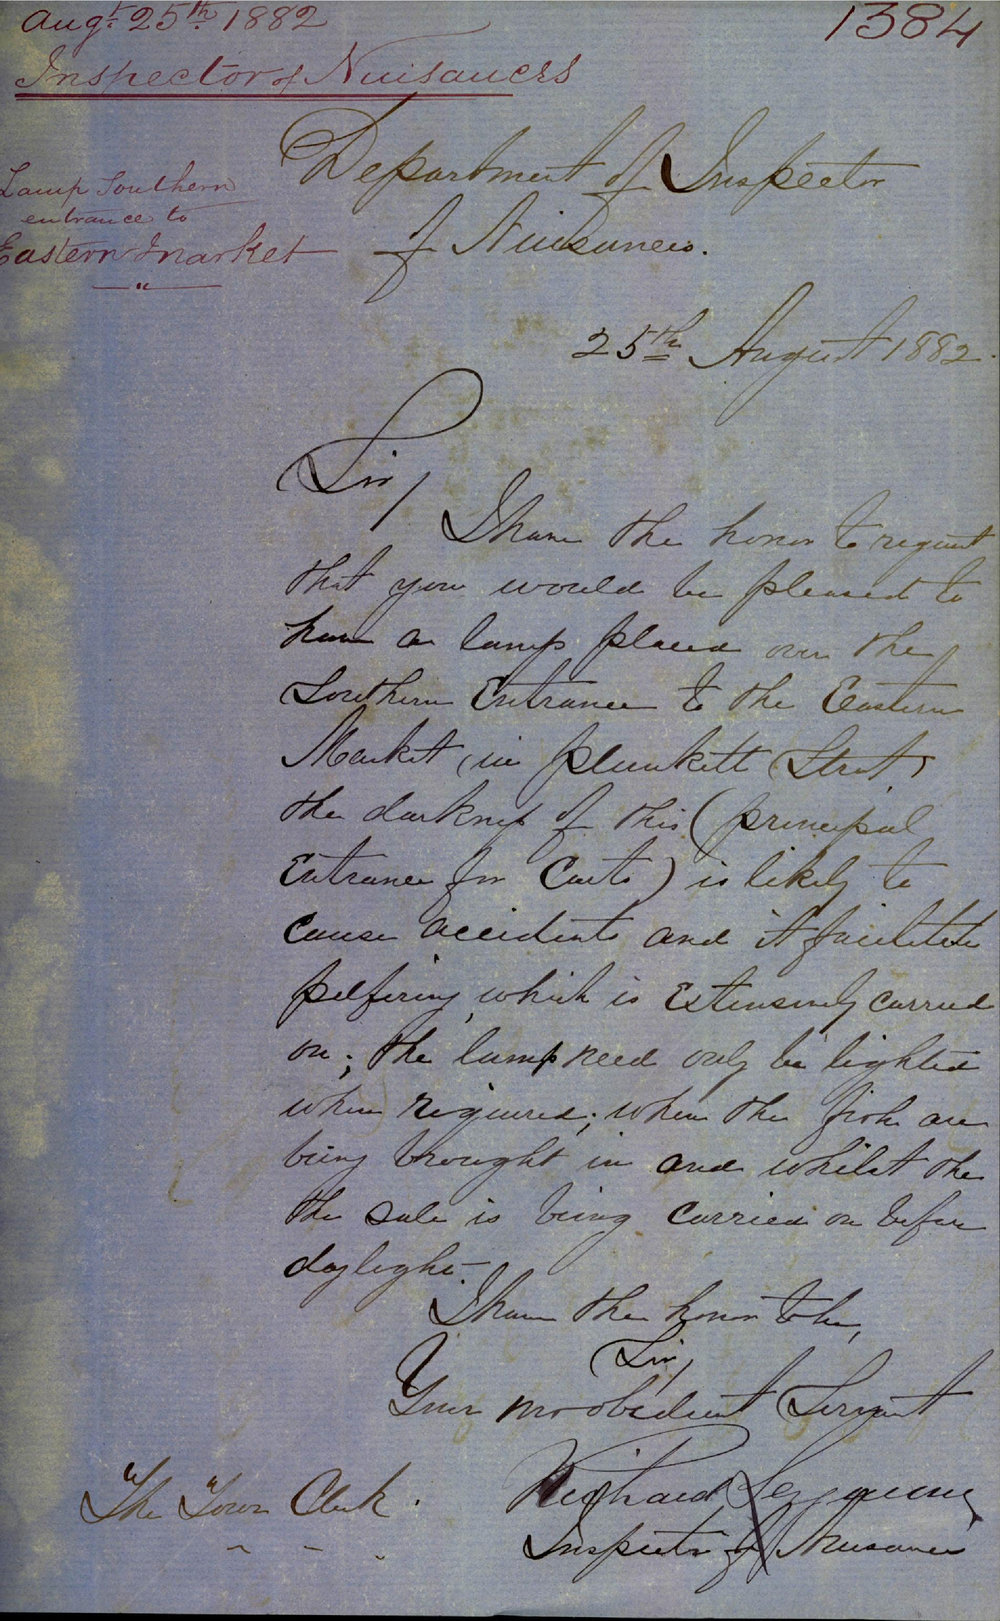 Augt. 25th 1882
1384
Inspector of Nuisances
Lamp Southern
entrance to
Eastern Market
Department of Inspector
of Nuisances.
25th August 1882.
Sir,
I have the honor to request
that you would be pleased to
have a lamp placed over the
Southern Entrance to the Eastern
Market, in Plunkett Street,
the darkness of this (principal
Entrance for Carts) is likely to
cause accidents and it facilitate
pilfering, which is Extensively carried
on; the lamp need only be lighted
when required; when the fish are
being brought in and whilst the
the sale is being carried on before
daylight.
I have the honor to be,
Sir,
Your mo obedient Servant
Richard Seymour
Inspector of Nuisances
The Town Clerk.